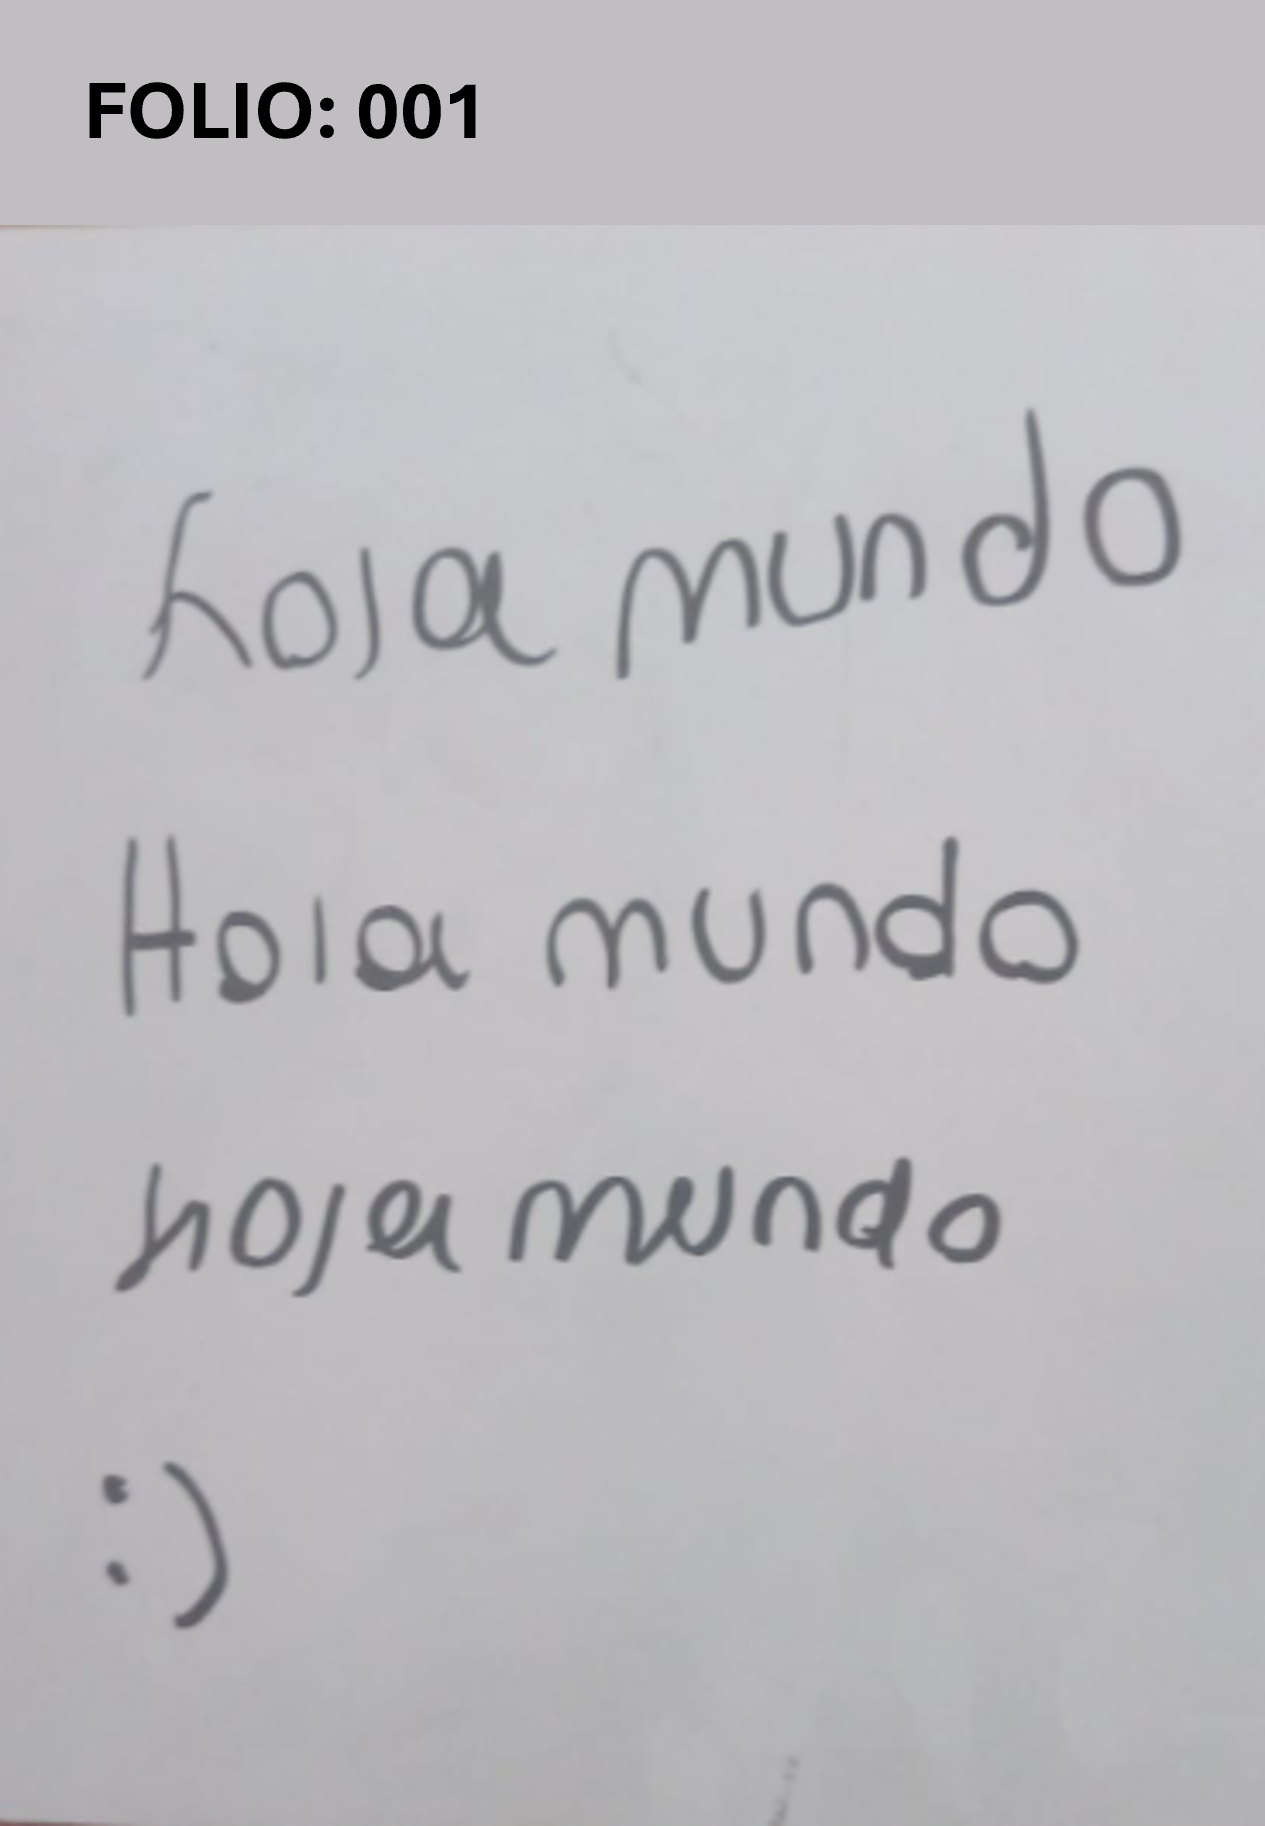 FOLIO: 001
hola mundo
Hola mundo
hola mundo
:)